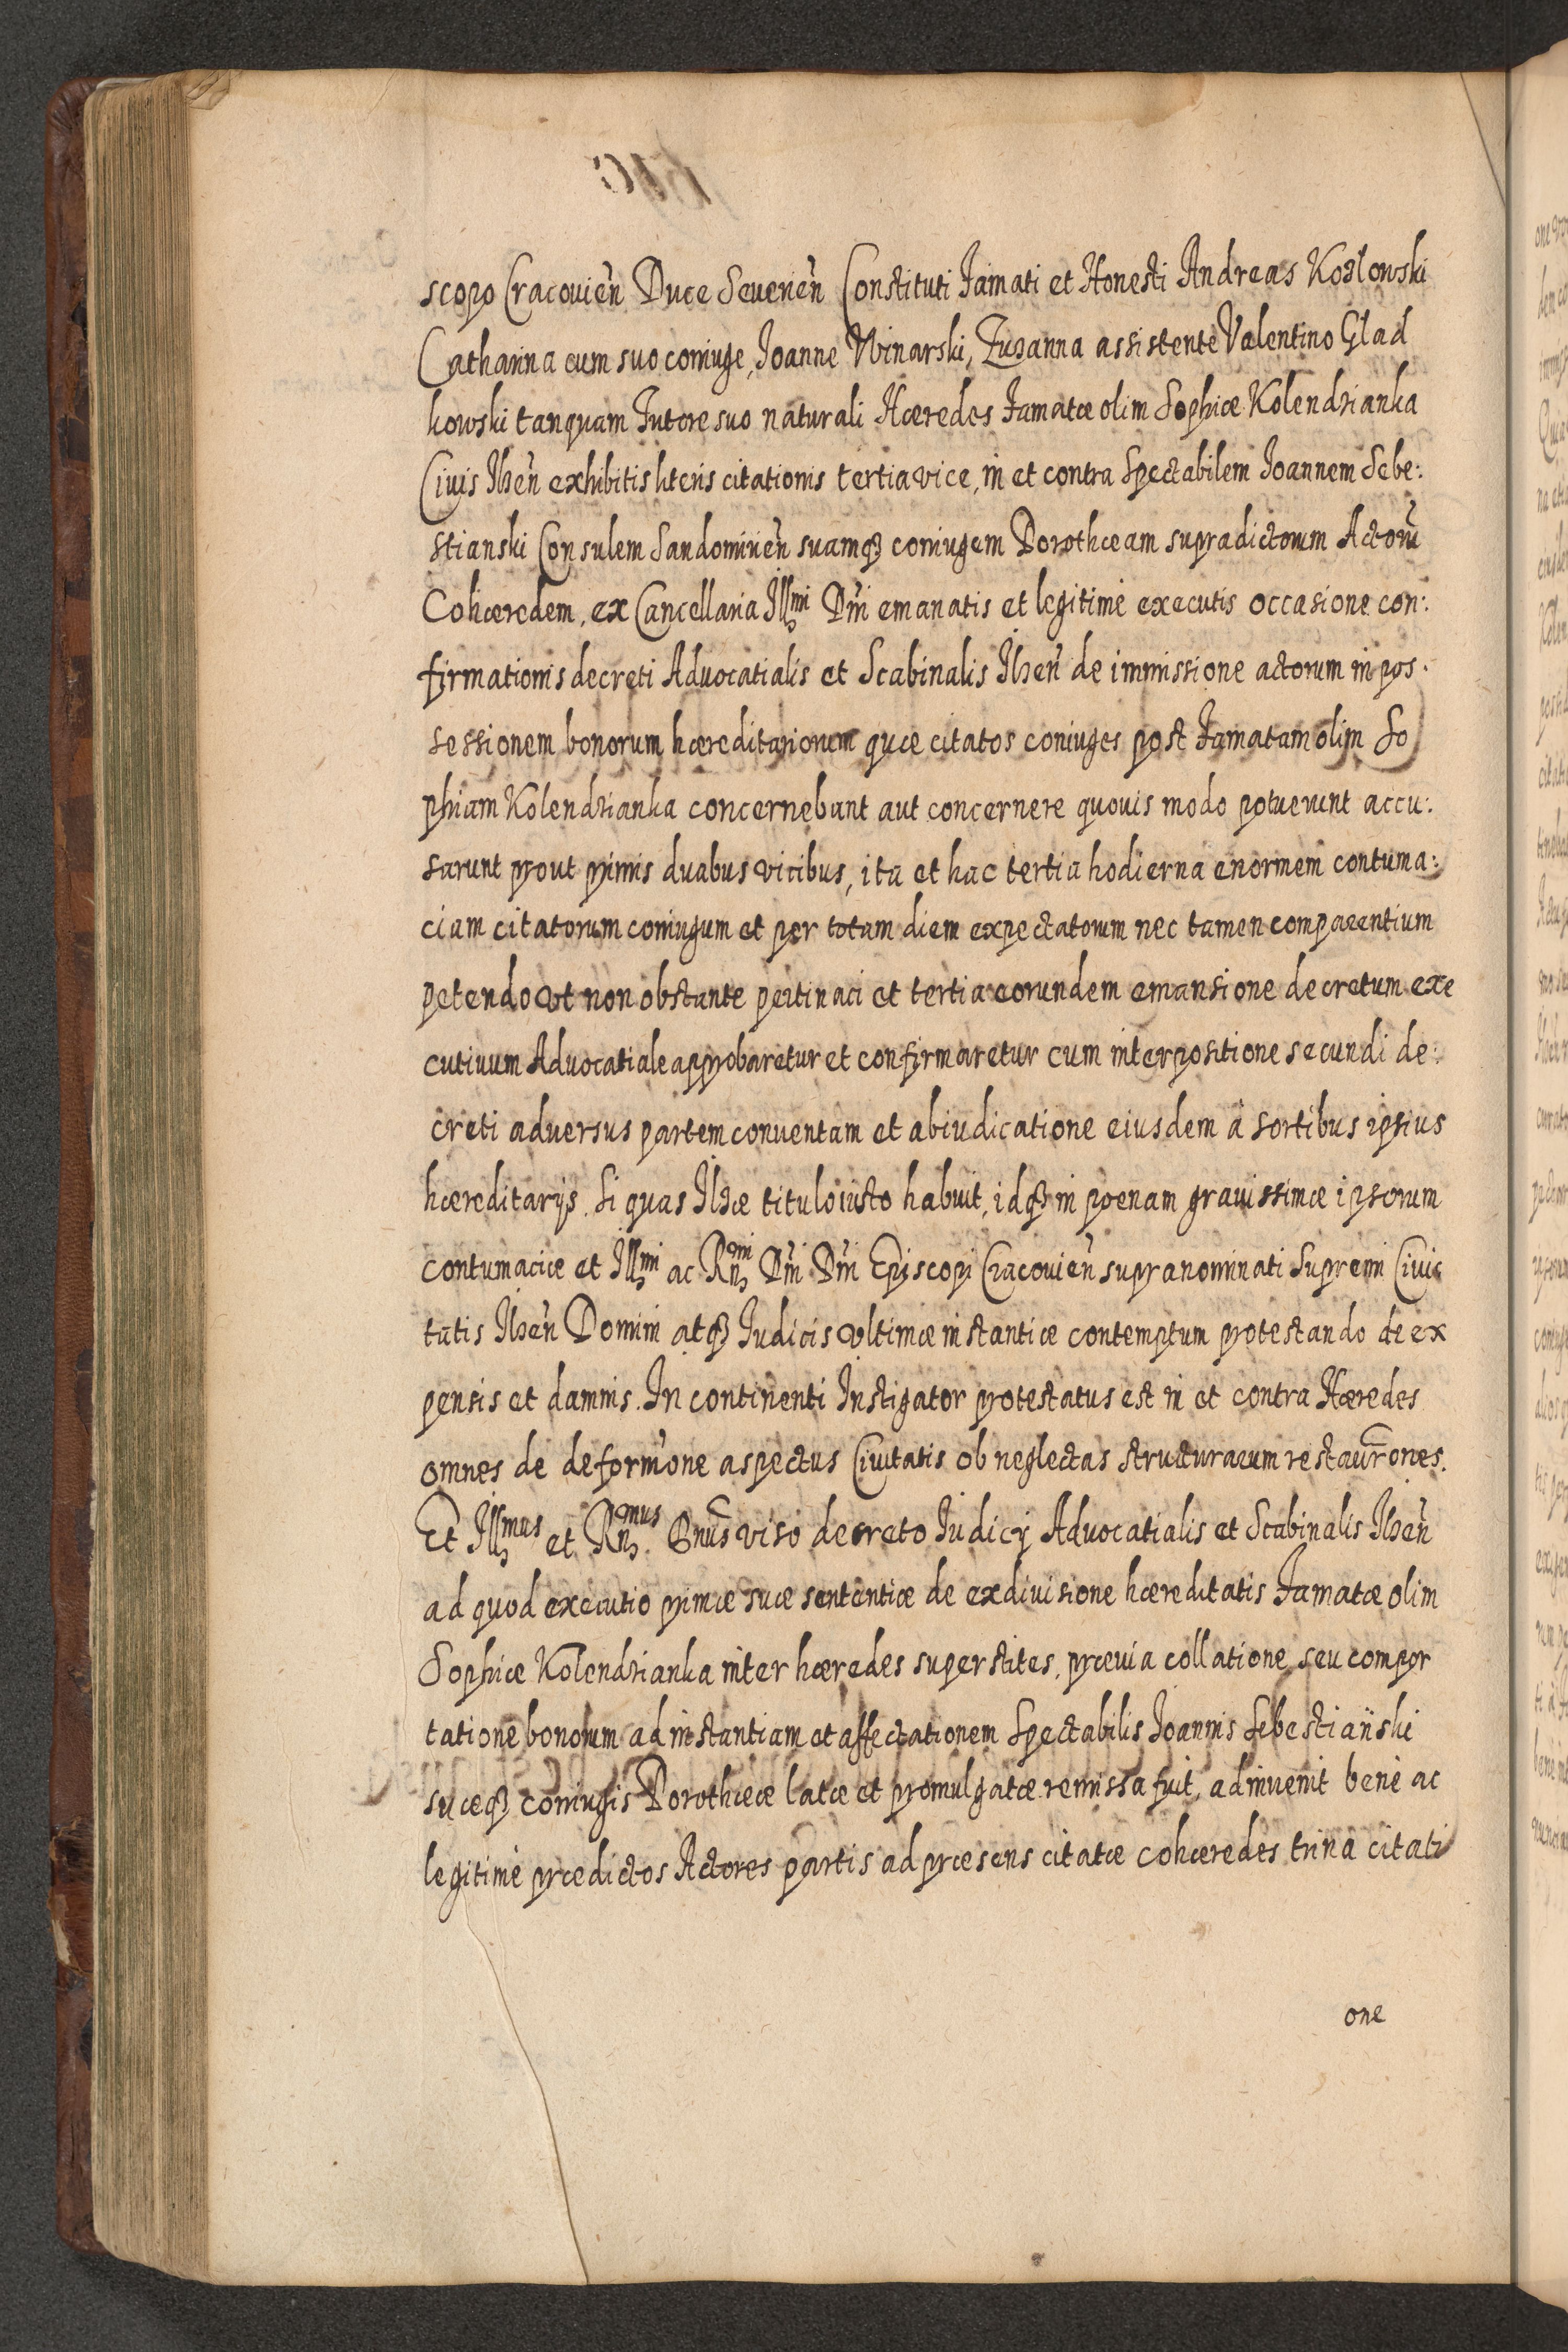 scopo Cracouień Duce Seueień Constituti Famati et Honesti Andreas Kozłowski
Catharina cum suo coniuge, Joanne Winarski, Zuzanna assistente Valentino Glad
kowski tanquam Tutore suo naturali Hæredes Famatæ olim Sophiæ Kolendzianka
Ciuis Ilzeń exhibitis literis citationis tertia vice, in et contra Spectabilem Joannem Sebe:
stianski Consulem Sandomirień suamqȝ coniugem Dorothæam supradictorum Actorū
Cohæredem, ex Cancellaria Illmi Dni emanatis et legitimè executis occasione con:
firmationis decreti Aduocatialis et Scabinalis Ilzeń de immissione actorum in pos:
sessionem bonorum hæreditariorum quæ citatos coniuges post Famatam olim So
phiam Kolendzianka concernebant aut concernere quouis modo potuerunt accu:
sarunt prout primis duabus vicibus, ita et hac tertia hodierna enormem contuma:
ciam citatorum coniugum et per totam diem expectatorum nec tamen comparentium
petendo vt non obstante pertinaci et tertia eorundem emansione decretum exe
cutiuum Aduocatiale approbaretur et confirmaretur cum interpositione secundi de:
creti aduersus partem conuentam et abiudicatione eiusdem â sortibus ipsius
hæreditarijs. si quas Ilzæ titulo iusto habuit, idqȝ in pœnam grauissimæ ipsorum
contumaciæ et Illmi ac Rndmi Dni Dni Episcopi Cracouień supranominati Supremi Ciui
tatis Ilzeń Domini atqȝ Iudicis vltimæ instantiæ contemptum protestando de ex
pensis et damnis. In continenti Instigator protestatus est in et contra Hæredes
omnes de deformõne aspectus Ciuitatis ob neglectas structurarum restaurõnes.
Et Illmus et Rndmus Dnus viso decreto Iudicij Aduocatialis et Scabinalis Ilzeń
ad quod executio primæ suæ sententiæ de exdiuisione hæreditatis Famatæ olim
Sophiæ Kolendzianka inter hæredes superstites, præuia collatione seu compor
tatione bonorum ad instantiam et affectationem Spectabilis Joannis Sebestiański
suæqȝ coniugis Dorothææ latæ et promulgatæ remissa fuit, adinuenit benè ac
legitimè prædictos Actores partis ad præsens citatæ cohæredes trina citati
one